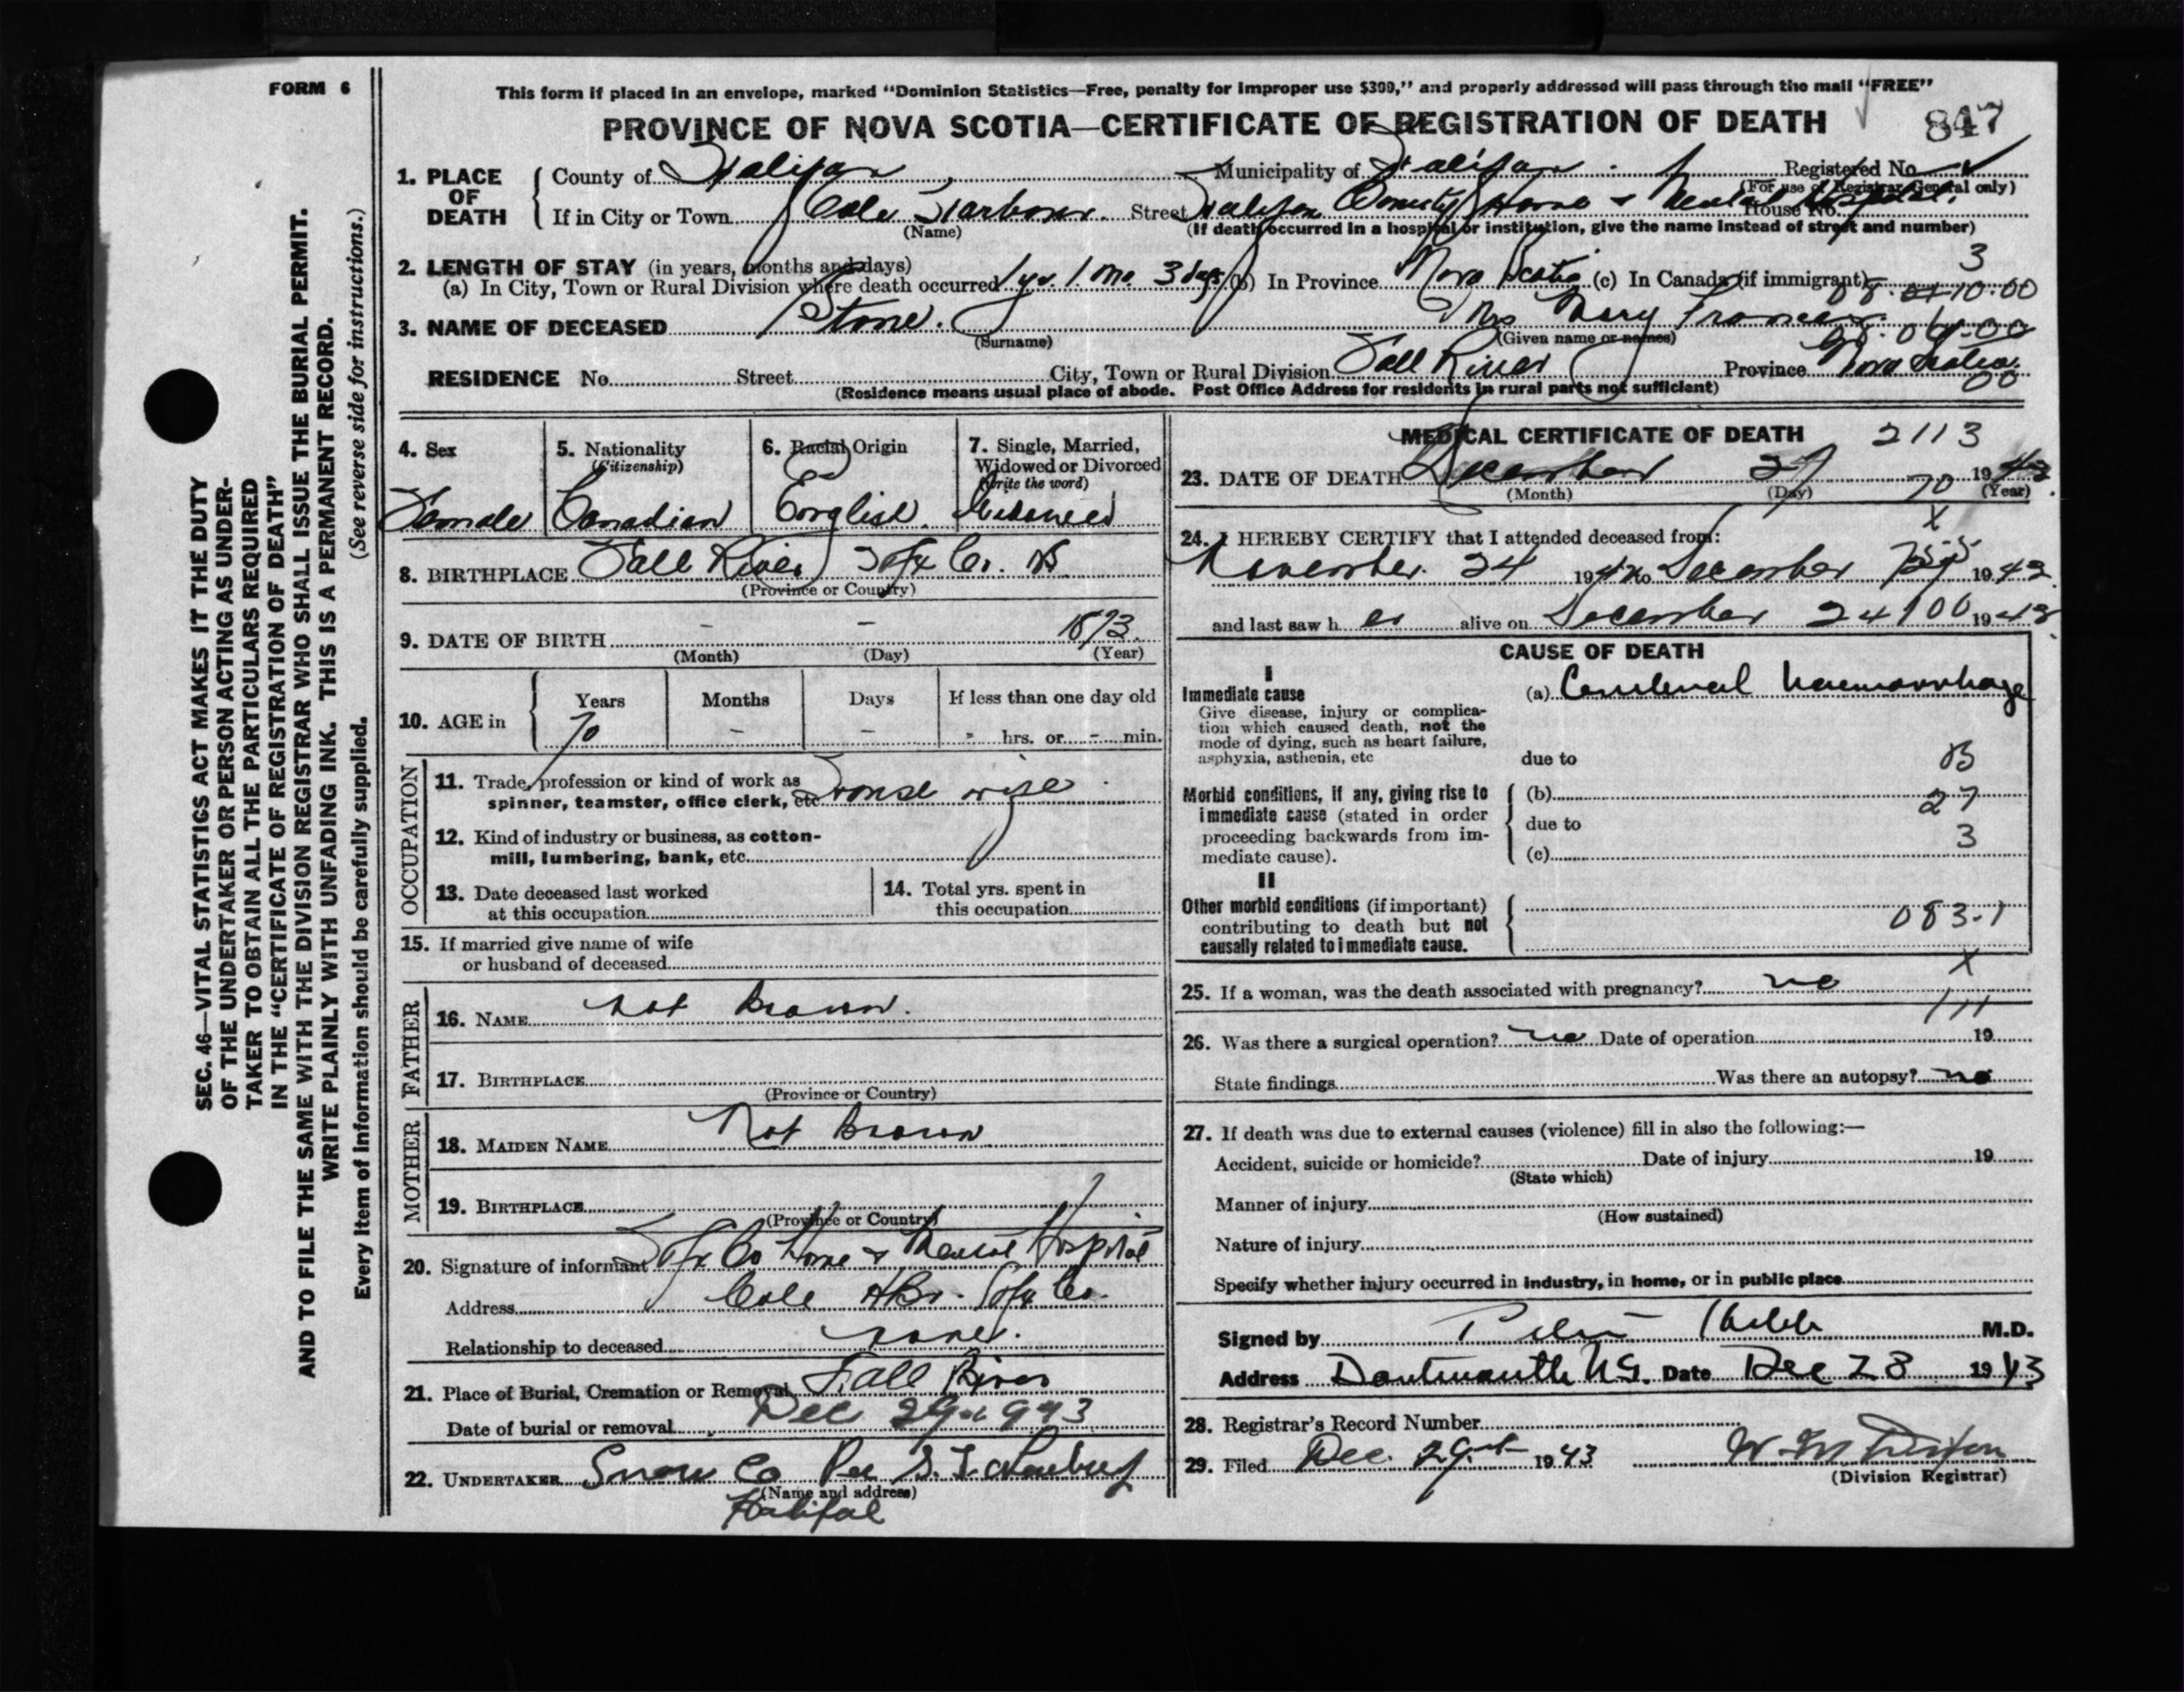 FORM 6
This form if placed in an envelope, marked "Dominion Statistics—Free, penalty for improper use $300," and properly addressed will pass through the mail "FREE"
PROVINCE OF NOVA SCOTIA—CERTIFICATE OF REGISTRATION OF DEATH
847
1. PLACE OF DEATH
County of Halifax Municipality of Halifax Registered No.
(For use of Registrar General only)
If in City or Town Cole Harbour Street Halifax County Home & Mental Hospital. House No.
(Name) (If death occurred in a hospital or institution, give the name instead of street and number)
2. LENGTH OF STAY (in years, months and days)
3
(a) In City, Town or Rural Division where death occurred 1 yr. 1 Mo. 3 days (b) In Province Nova Scotia (c) In Canada (if immigrant)
3. NAME OF DECEASED Stone. Mrs Mary Frances
(Surname) (Given name or names)
RESIDENCE No. Street City, Town or Rural Division Fall River Province Nova Scotia
00
(Residence means usual place of abode. Post Office Address for residents in rural parts not sufficient)
4. Sex
Female
5. Nationality
(Citizenship)
Canadian
6. Racial Origin
English.
7. Single, Married,
Widowed or Divorced
(Write the word)
Widowed
8. BIRTHPLACE Fall River Hfx Co. NS
(Province or Country)
9. DATE OF BIRTH – – 1873.
(Month) (Day) (Year)
10. AGE in
Years Months Days If less than one day old
70 – – - hrs. or - min.
OCCUPATION
11. Trade, profession or kind of work as
spinner, teamster, office clerk, etc House wife
12. Kind of industry or business, as cotton-
mill, lumbering, bank, etc.
13. Date deceased last worked
at this occupation
14. Total yrs. spent in
this occupation
15. If married give name of wife
or husband of deceased
FATHER
16. NAME Not Known.
17. BIRTHPLACE
(Province or Country)
MOTHER
18. MAIDEN NAME Not Known
19. BIRTHPLACE
(Province or Country)
20. Signature of informant Hfx Co Home & Mental Hospital
Address Cole Hbr. Hfx Co.
Relationship to deceased none.
21. Place of Burial, Cremation or Removal Fall River
Date of burial or removal Dec 29 1943
22. UNDERTAKER Snow Co Per
(Name and address)
Halifax
MEDICAL CERTIFICATE OF DEATH 2113
23. DATE OF DEATH December 27 1943
(Month) (Day) (Year)
70
X
24. I HEREBY CERTIFY that I attended deceased from:
November 24 1942 to December 1943
and last saw her alive on December 24 1943
100
CAUSE OF DEATH
I
Immediate cause
Give disease, injury or complica-
tion which caused death, not the
mode of dying, such as heart failure,
asphyxia, asthenia, etc
(a) Cerebral haemorrhage
due to
Morbid conditions, if any, giving rise to
immediate cause (stated in order
proceeding backwards from im-
mediate cause).
(b)
27
due to
3
(c)
II
Other morbid conditions (if important)
contributing to death but not
causally related to immediate cause.
083-1
X
25. If a woman, was the death associated with pregnancy? no
111
26. Was there a surgical operation? no Date of operation 19
State findings Was there an autopsy? no
27. If death was due to external causes (violence) fill in also the following:—
Accident, suicide or homicide? Date of injury 19
(State which)
Manner of injury
(How sustained)
Nature of injury
Specify whether injury occurred in industry, in home, or in public place
Signed by M.D.
Address Dartmouth N.S. Date Dec 28 1943
28. Registrar's Record Number
29. Filed Dec. 29th 1943
(Division Registrar)
SEC. 46—VITAL STATISTICS ACT MAKES IT THE DUTY
OF THE UNDERTAKER OR PERSON ACTING AS UNDER-
TAKER TO OBTAIN ALL THE PARTICULARS REQUIRED
IN THE "CERTIFICATE OF REGISTRATION OF DEATH"
AND TO FILE THE SAME WITH THE DIVISION REGISTRAR WHO SHALL ISSUE THE BURIAL PERMIT.
WRITE PLAINLY WITH UNFADING INK. THIS IS A PERMANENT RECORD.
Every item of information should be carefully supplied. (See reverse side for instructions.)